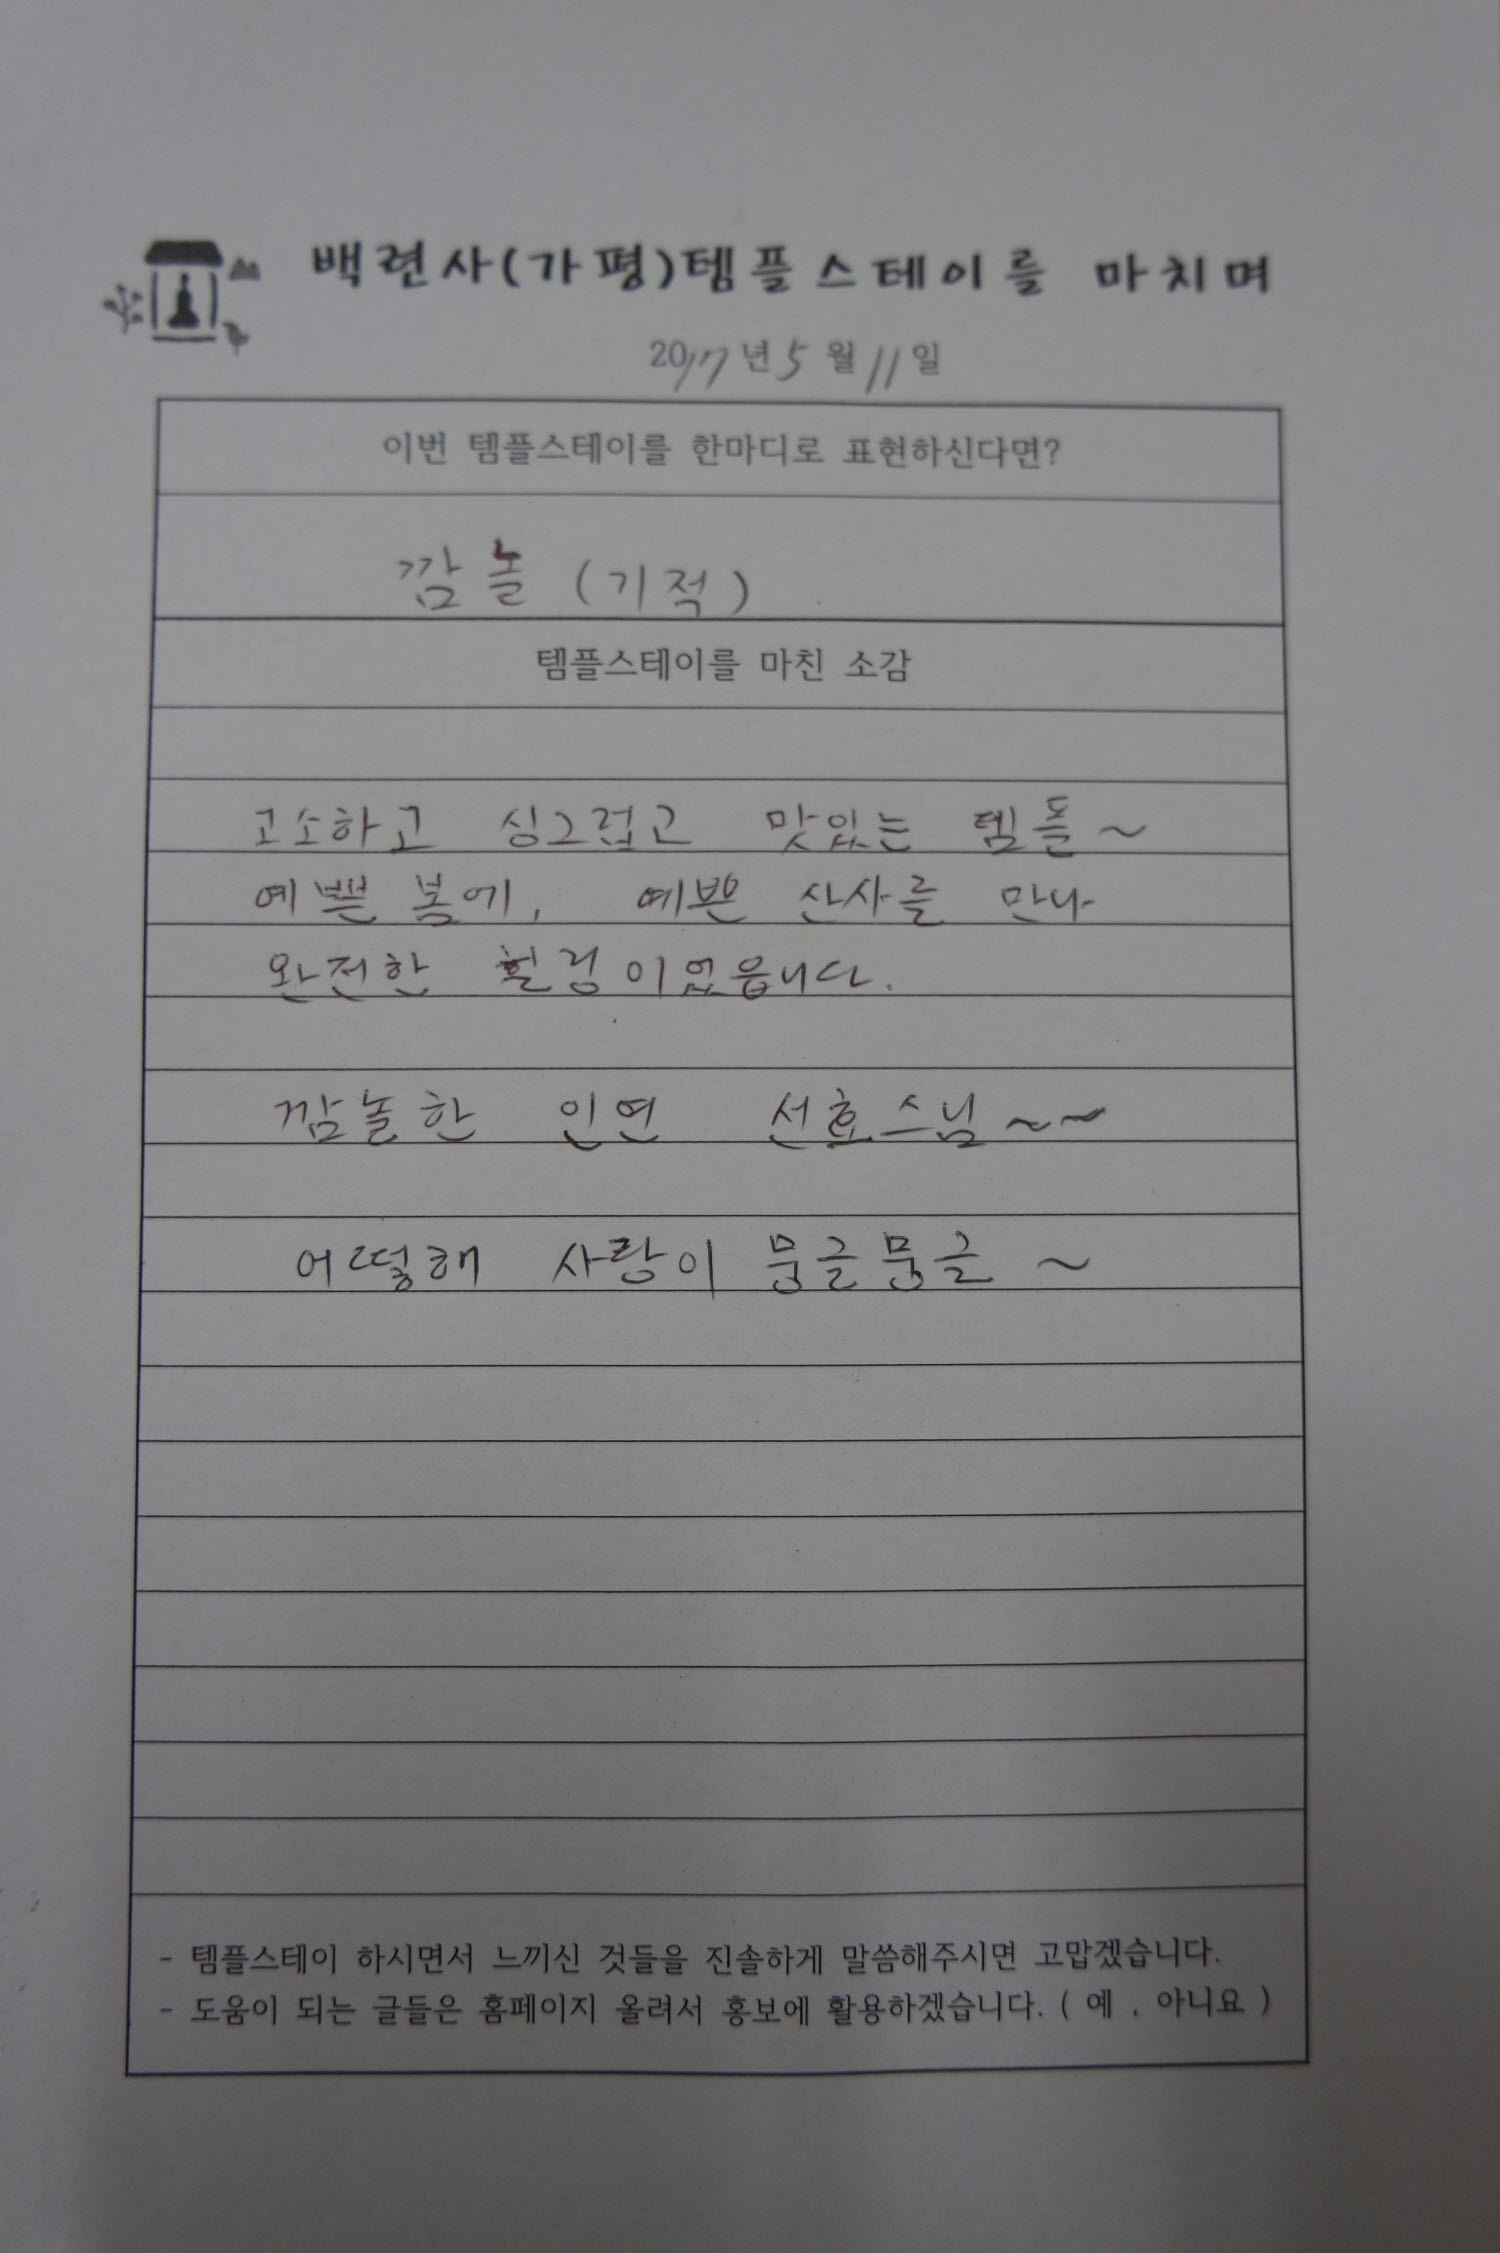 백련사(가평)템플스테이를 마치며
2017년 5월 11일
이번 템플스테이를 한마디로 표현하신다면?
깜놀 (기적)
템플스테이를 마친 소감
고소하고 싱그럽고 맛있는 템플~
예쁜 봄에, 예쁜 산사를 만나
완전한 힐링이었읍니다.
깜놀한 인연 선효스님~~
어떻해 사랑이 뭉글뭉글~
- 템플스테이 하시면서 느끼신 것들을 진솔하게 말씀해주시면 고맙겠습니다.
- 도움이 되는 글들은 홈페이지 올려서 홍보에 활용하겠습니다. ( 예 , 아니요 )